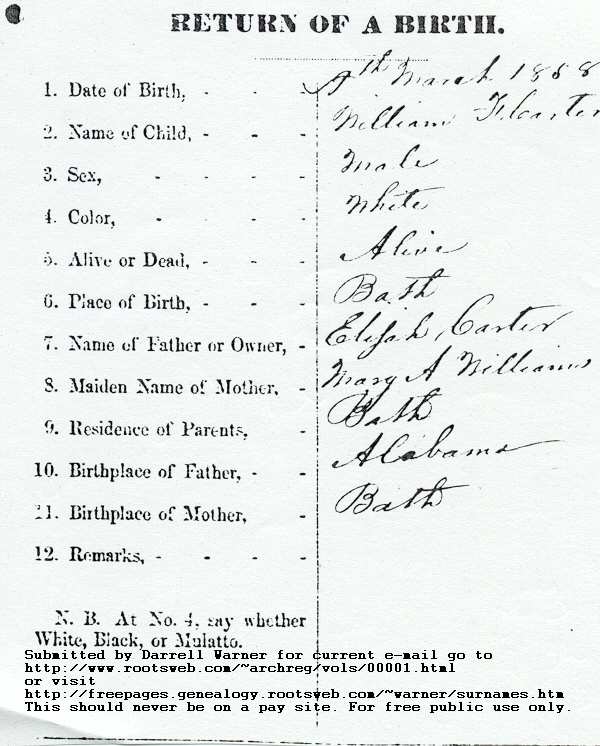 RETURN OF A BIRTH.
1. Date of Birth, - - - 9th March 1858
2. Name of Child, - - - William F Carter
3. Sex, - - - - Male
4. Color, - - - White
5. Alive or Dead, - - - Alive
6. Place of Birth, - - - Bath
7. Name of Father or Owner, - Elijah Carter
8. Maiden Name of Mother, - Mary A Williams
9. Residence of Parents, - Bath
10. Birthplace of Father, - - Alabama
11. Birthplace of Mother, - Bath
12. Remarks, - - - -
N. B. At No. 4, say whether
White, Black, or Mulatto.
Submitted by Darrell Warner for current e-mail go to
http://www.rootsweb.com/~archreg/vols/00001.html
or visit
http://freepages.genealogy.rootsweb.com/~warner/surnames.htm
This should never be on a pay site. For free public use only.